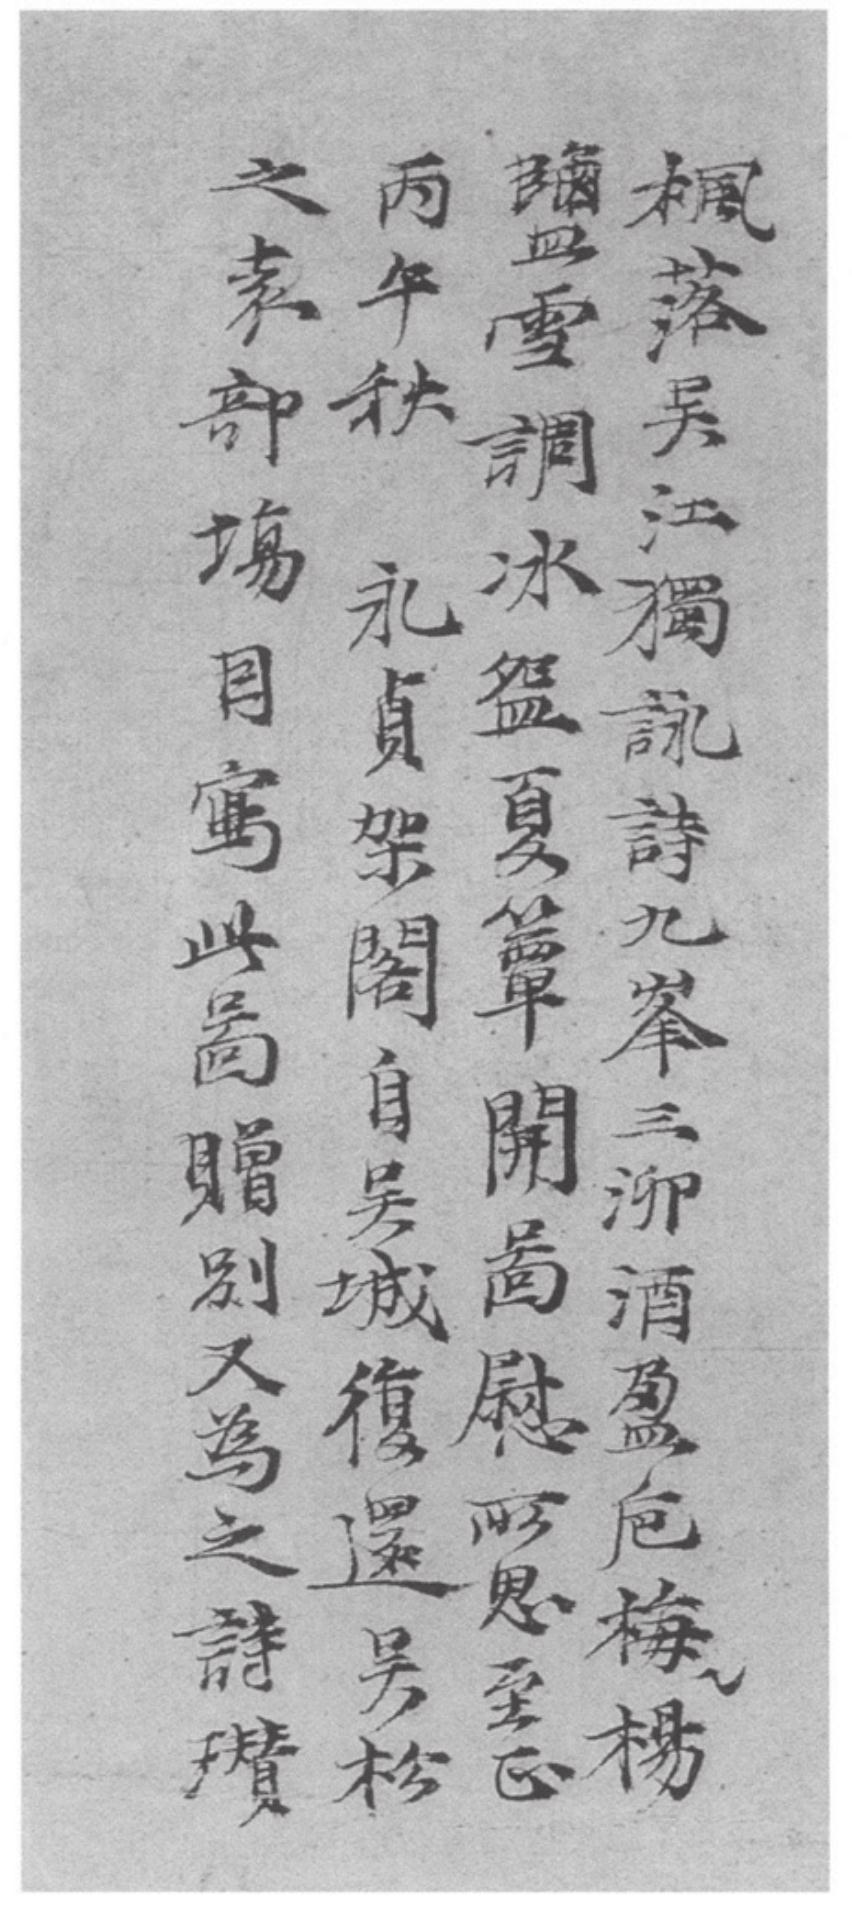 楓落吳江獨詠詩九峯三泖酒盈卮梅楊
鹽雪調冰盌夏簟開啚慰所思至正
丙午秋　永貞架閣自吳城復還吳松
之袁部塲囙寫此啚贈別又為之詩瓚